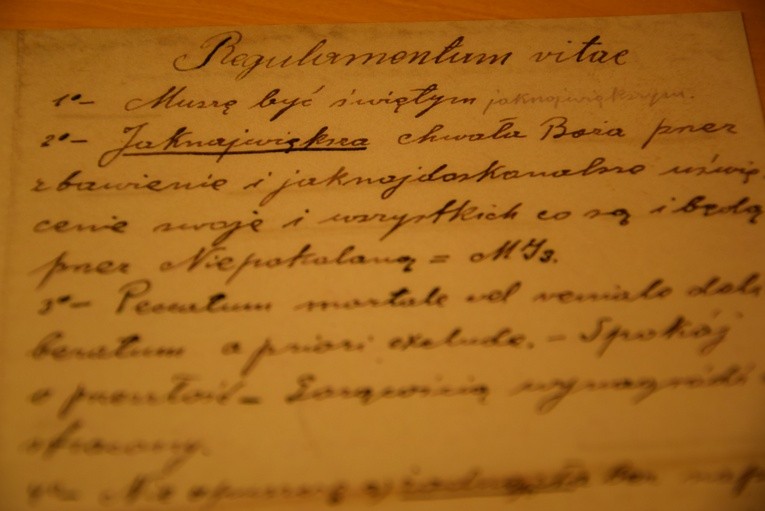 Regulamentum vitae
1º - Muszę być świętym jaknajwiększym.
2º - Jaknajwiększa chwała Boża przez
zbawienie i jaknajdoskonalsze uświę-
cenie swoje i wszystkich co są i będą
przez Niepokalaną = MI3.
3º - Peccatum mortale vel veniale deli
beratum a priori exclude. - Spokój
o przeszłość - Gorącością wynagródź
4º - Nie opuszczę